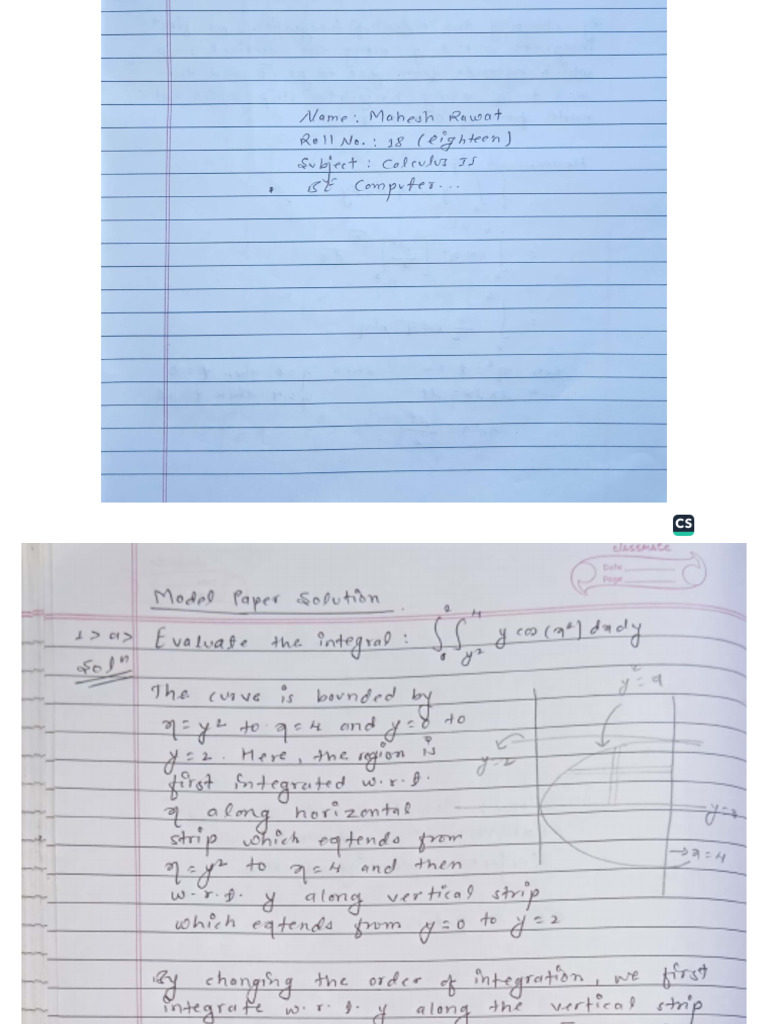 Name: Mahesh Rawat
Roll No.: 18 (eighteen)
Subject: Calculus II
BE Computer...
CS
classmate
Date
Page
Model Paper Solution.
1> a> Evaluate the integral: ∫₀² ∫_{y²}^4 y cos(x²) dxdy
Solⁿ
The curve is bounded by
x = y² to x = 4 and y = 0 to
y = 2. Here, the region is
first integrated w.r.t.
x along horizontal
strip which extends from
x = y² to x = 4 and then
w.r.t. y along vertical strip
which extends from y = 0 to y = 2
y² = x
y = 2
→ x = 4
By changing the order of integration, we first
integrate w.r.t. y along the vertical strip